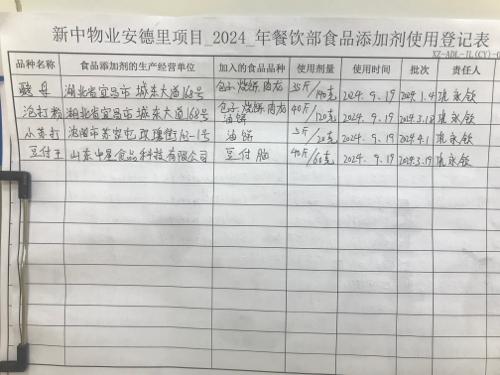 新中物业安德里项目 2024 年餐饮部食品添加剂使用登记表
XZ-ADL-JL(CY)-0
品种名称 食品添加剂的生产经营单位 加入的食品品种 使用剂量 使用时间 批次 责任人
酸母 湖北省宜昌市城东大道168号 包子 烧饼 肉龙 35斤/140克 2024.9.19 2024.1.4
泡打粉 湖北省宜昌市城东大道168号 包子 烧饼 肉龙 油饼 40斤/120克 2024.9.19 2024.3.18
小苏打 油饼 2024.9.19 2024.4.1
豆付王 山东中星食品科技有限公司 豆付脑 40斤/60克 2024.9.19 2024.3.19